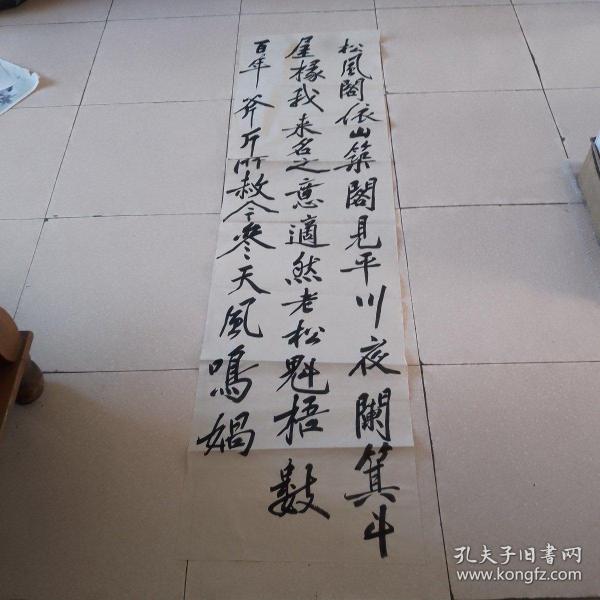 松風閣依山築閣見平川夜闌箕斗
屋椽我来名之意適然老松魁梧數
百年斧斤所赦今參天風鳴媧
孔夫子旧书网
www.kongfz.com